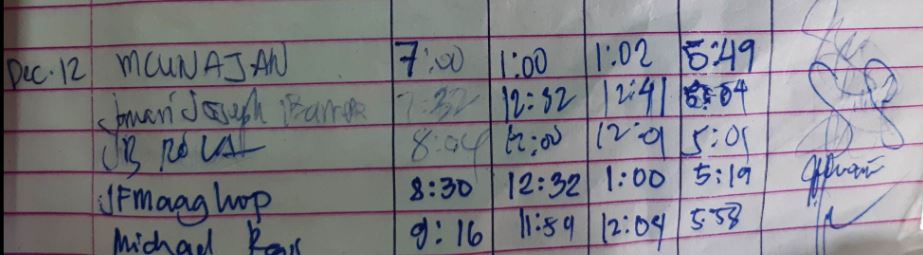 Dec. 12 MCUNAJAN 7:00 1:00 1:02 5:49
Jomari Joseph 7:32 12:32 12:41
JB 8:04 12:00 12:01 5:01
JFMaaghop 8:30 12:32 1:00 5:19
Michael 9:16 11:59 12:04 5:58